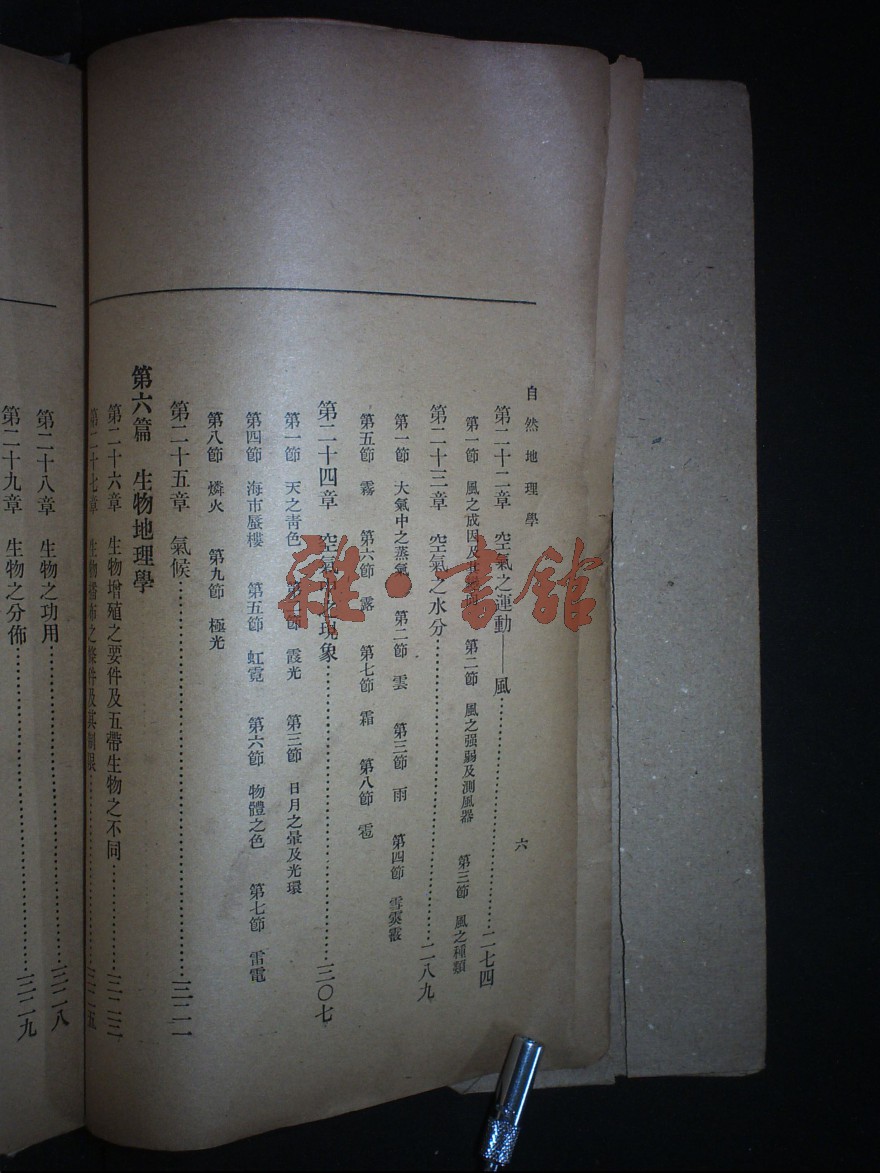 自然地理學 六
第二十二章 空氣之運動——風 二七四
第一節 風之成因及其 第二節 風之强弱及測風器 第三節 風之種類
第二十三章 空氣之水分 二八九
第一節 大氣中之蒸氣 第二節 雲 第三節 雨 第四節 雪霙霰
第五節 霧 第六節 露 第七節 霜 第八節 雹
第二十四章 空氣中之現象 三〇七
第一節 天之青色 第二節 霞光 第三節 日月之暈及光環
第四節 海市蜃樓 第五節 虹霓 第六節 物體之色 第七節 雷電
第八節 燐火 第九節 極光
第二十五章 氣候 三二一
第六篇 生物地理學
第二十六章 生物增殖之要件及五帶生物之不同 三二三
第二十七章 生物播布之條件及其制限 三二五
第二十八章 生物之功用 三二八
第二十九章 生物之分佈 三二九
雜·書館